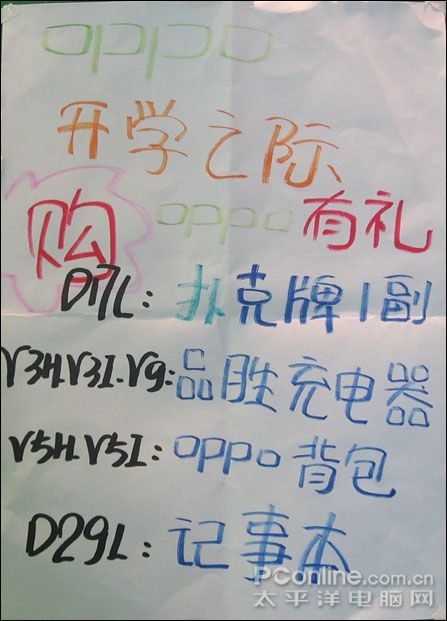 oppo
开学之际
购 oppo 有礼
D17L：扑克牌1副
V3H.V3I.V9：品胜充电器
V5H.V5I：oppo背包
D29L：记事本
PConline.com.cn
太平洋电脑网